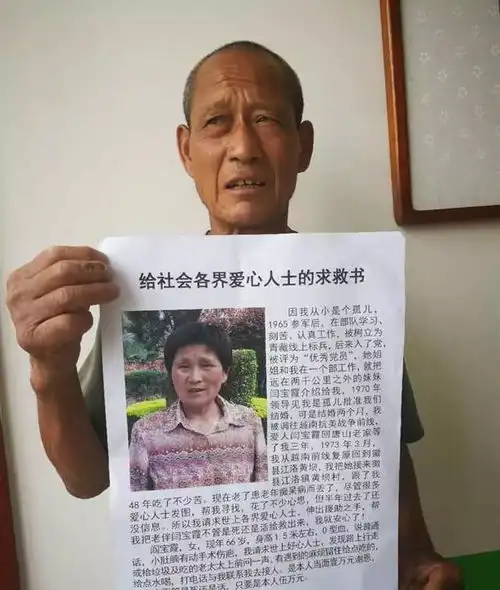 给社会各界爱心人士的求救书
因我从小是个孤儿，
1965 参军后，在部队学习，
刻苦、认真工作，被树立为
青藏线上标兵，后来入了党，
被评为“优秀党员”，她姐
姐和我在一个部工作，就把
远在两千公里之外的妹妹
闫宝霞介绍给我，1970 年
领导见我是孤儿批准我们
结婚，可是结婚两个月，我
被调往越南抗美战争前线，
爱人闫宝霞回唐山老家等
了我三年，1973 年 3 月，
我从越南前线复原回到徽
县江洛黄坝，我把她接来徽
县江洛镇黄坝村，跟了我
48 年吃了不少苦。现在老了患老年痴呆病而丢了，尽管很多
爱心人士发图，帮我寻找，花了不少心思，但半年过去了还
没信息。所以我请求世上各界爱心人士，伸出援助之手，帮
我把老伴闫宝霞不管是死还是活给救出来，我就安心了！
闫宝霞，女，现年 66 岁，身高 1.5 米左右，O 型血，说普通
话，小肚腩有动手术伤疤，我请求世上好心人士，发现路上行走
或拾垃圾及吃的老太太上前问一声，有遇到的麻烦留住给点吃的，
给点水喝，打电话与我联系我去接人。是本人当面壹万元谢恩，
只要是本人伍万元。